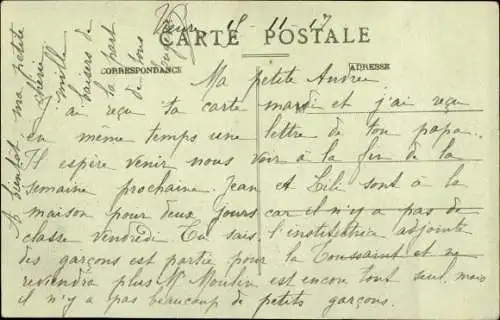 Vieure 18-11-17
CARTE POSTALE
CORRESPONDANCE
ADRESSE
Ma petite Andrée
J'ai reçu ta carte mardi et j'ai reçu
en même temps une lettre de ton papa.
Il espère venir nous voir à la fin de la
semaine prochaine. Jean et Lili sont à la
maison pour deux jours car il n'y a pas de
classe vendredi. Tu sais l'institutrice adjointe
des garçons est partie pour la Toussaint et ne
reviendra plus Mr Moulin est encore tout seul, mais
il n'y a pas beaucoup de petits garçons.
A bientôt ma petite
chérie
mille
baisers de
la part
de tous